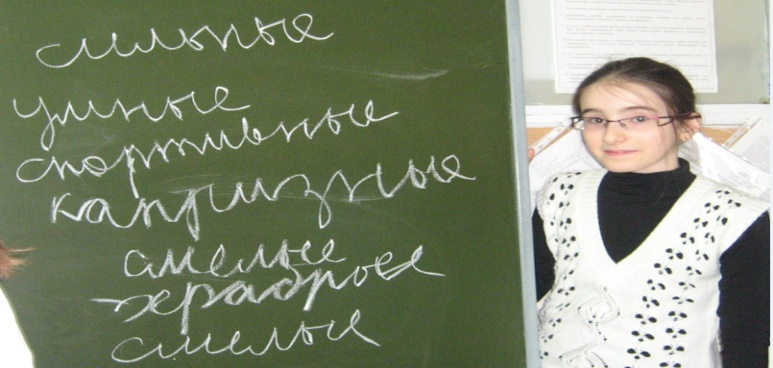 сильные
умные
спортивные
капризные
смелые
храбрые
смелые